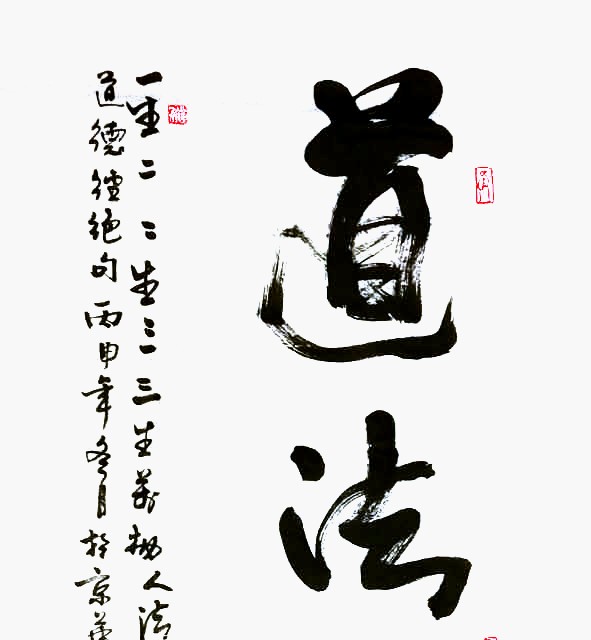 道法
一生二二生三三生萬物人法
道德經絕句丙申年冬月於京